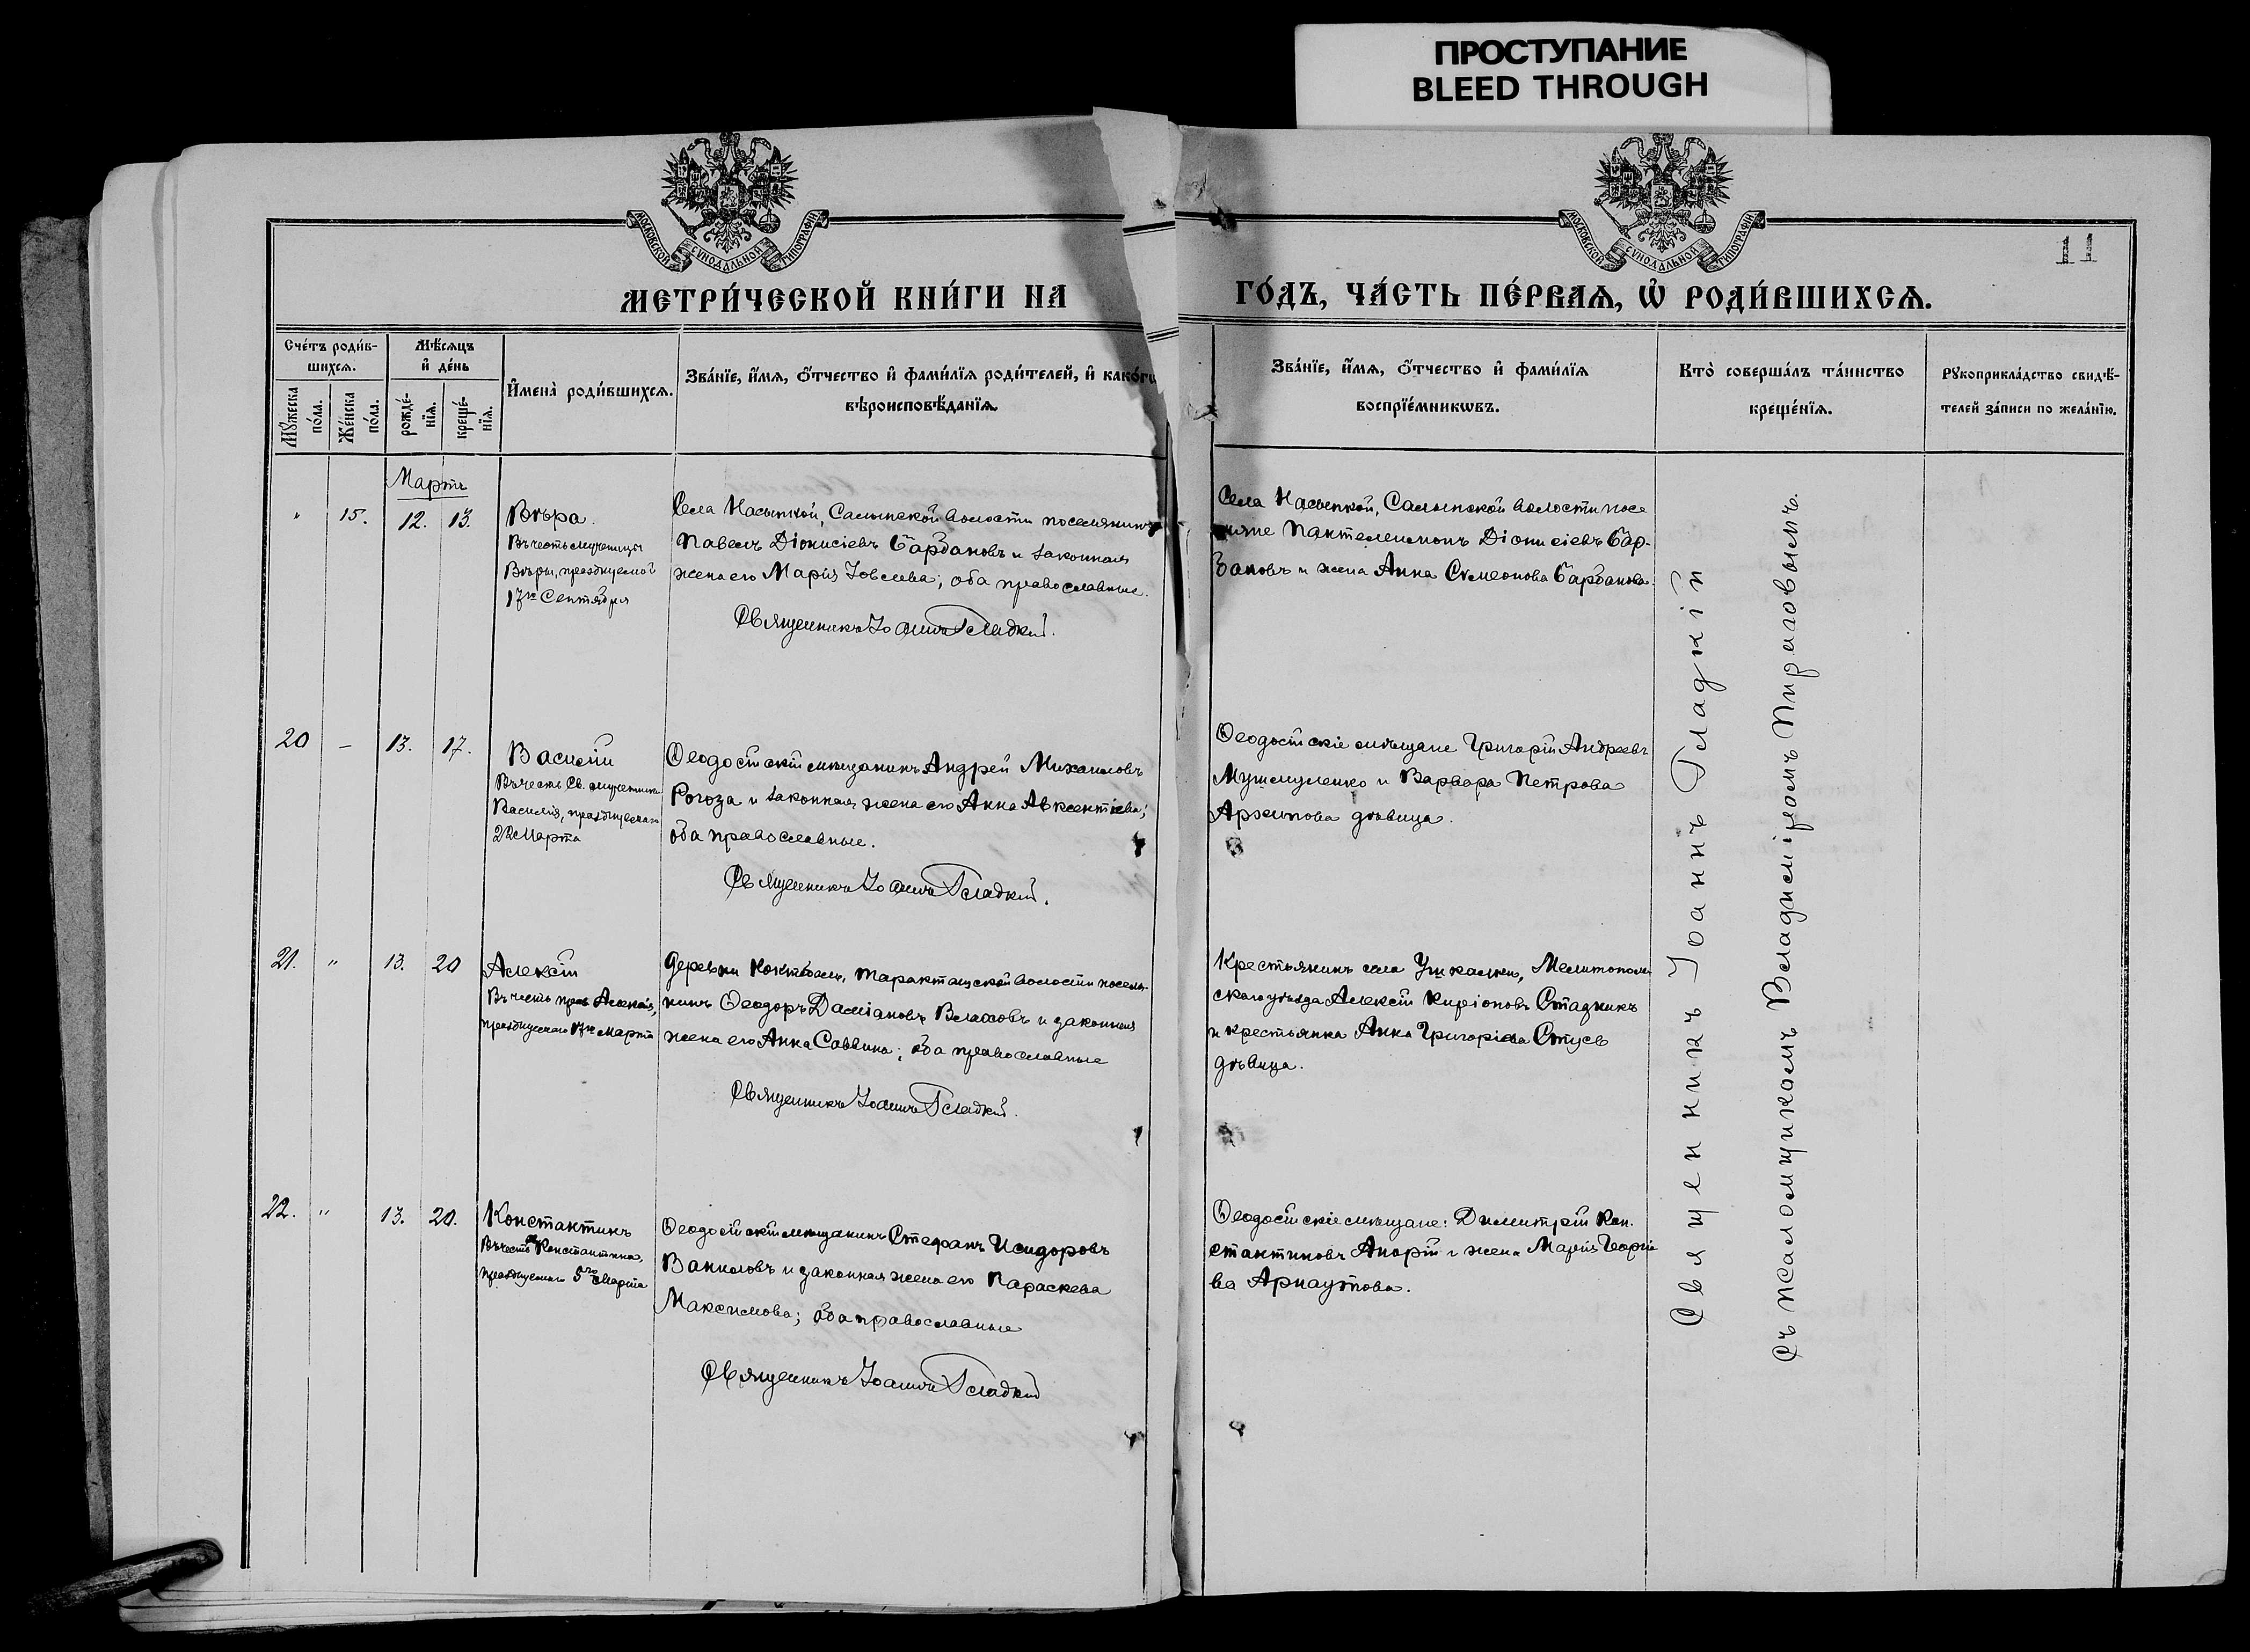 ПРОСТУПАНИЕ
BLEED THROUGH
МОСКОВСКОЙ СѴНОДАЛЬНОЙ ТИПОГРАФІИ
МОСКОВСКОЙ СѴНОДАЛЬНОЙ ТИПОГРАФІИ
11
МЕТРИ́ЧЕСКОЙ КНИ́ГИ НА
ГО́ДЪ, ЧА́СТЬ ПЕ́РВАѦ, Ѡ҆ РОДИ́ВШИХСѦ.
Сче́тъ роди́в-
шихсѧ.
Мꙋ́жеска по́ла.
Же́нска по́ла.
Мѣ́сѧцъ
и҆ де́нь
рожде́-
нїѧ.
креще́-
нїѧ.
И҆мена̀ роди́вшихсѧ.
Зва́нїе, и҆́мѧ, ѻ҆́тчество и҆ фами́лїѧ роди́телей, и҆ како́гѡ
вѣроисповѣ́данїѧ.
Зва́нїе, и҆́мѧ, ѻ҆́тчество и҆ фами́лїѧ
воспрїе́мникѡвъ.
Кто̀ соверша́лъ та́инство
креще́нїѧ.
Рꙋкоприкла́дство свидѣ́-
телей за́писи по жела́нїю.
Мартъ
" 15. 12. 13.
Вѣра.
Въ честь мученицы
Вѣры, празднуемой
17го Сентября
Села Насыпкой, Салынской волости поселянинъ
Павелъ Діонисіевъ Барбановъ и законная
жена его Марія Іовлева; оба православные.
Священникъ Іоаннъ Гладкій.
Села Насыпкой, Салынской волости посе
ляне Пантелеимонъ Діонисіевъ Бар-
бановъ и жена Анна Симеонова Барбанова.
20 – 13. 17.
Василій
Въ честь Св. мученика
Василія, празднуемаго
22 Марта
Ѳеодосійскій мѣщанинъ Андрей Михаиловъ
Рогоза и законная жена его Анна Авксентіева;
оба православные.
Священникъ Іоаннъ Гладкій.
Ѳеодосійскіе мѣщане Григорій Андреевъ
Мушмуленко и Варвара Петрова
Архипова дѣвица.
21. " 13. 20
Алексій
Въ честь преп Алексія,
празднуемаго 17го Марта
Деревни Коктебель, Таракташской волости поселя-
нинъ Ѳеодоръ Даміановъ Влаховъ и законная
жена его Анна Саввина; оба православные
Священникъ Іоаннъ Гладкій.
Крестьянинъ села Ушкалки, Мелитополь
скаго уѣзда Алексій Киріоновъ Стадникъ
и крестьянка Анна Григоріева Стусь
дѣвица.
22. " 13. 20.
Константинъ
Въ честь св Константина,
празднуемаго 5го Марта
Ѳеодосійскій мѣщанинъ Стефанъ Исидоровъ
Вакуловъ и законная жена его Параскева
Максимова; оба православные
Священникъ Іоаннъ Гладкій
Ѳеодосійскіе мѣщане: Димитрій Кон.
стантиновъ Апорій и жена Марія Георгіе
ва Арнаутова.
Священникъ Іоаннъ Гладкій
Съ псаломщикомъ Владиміромъ